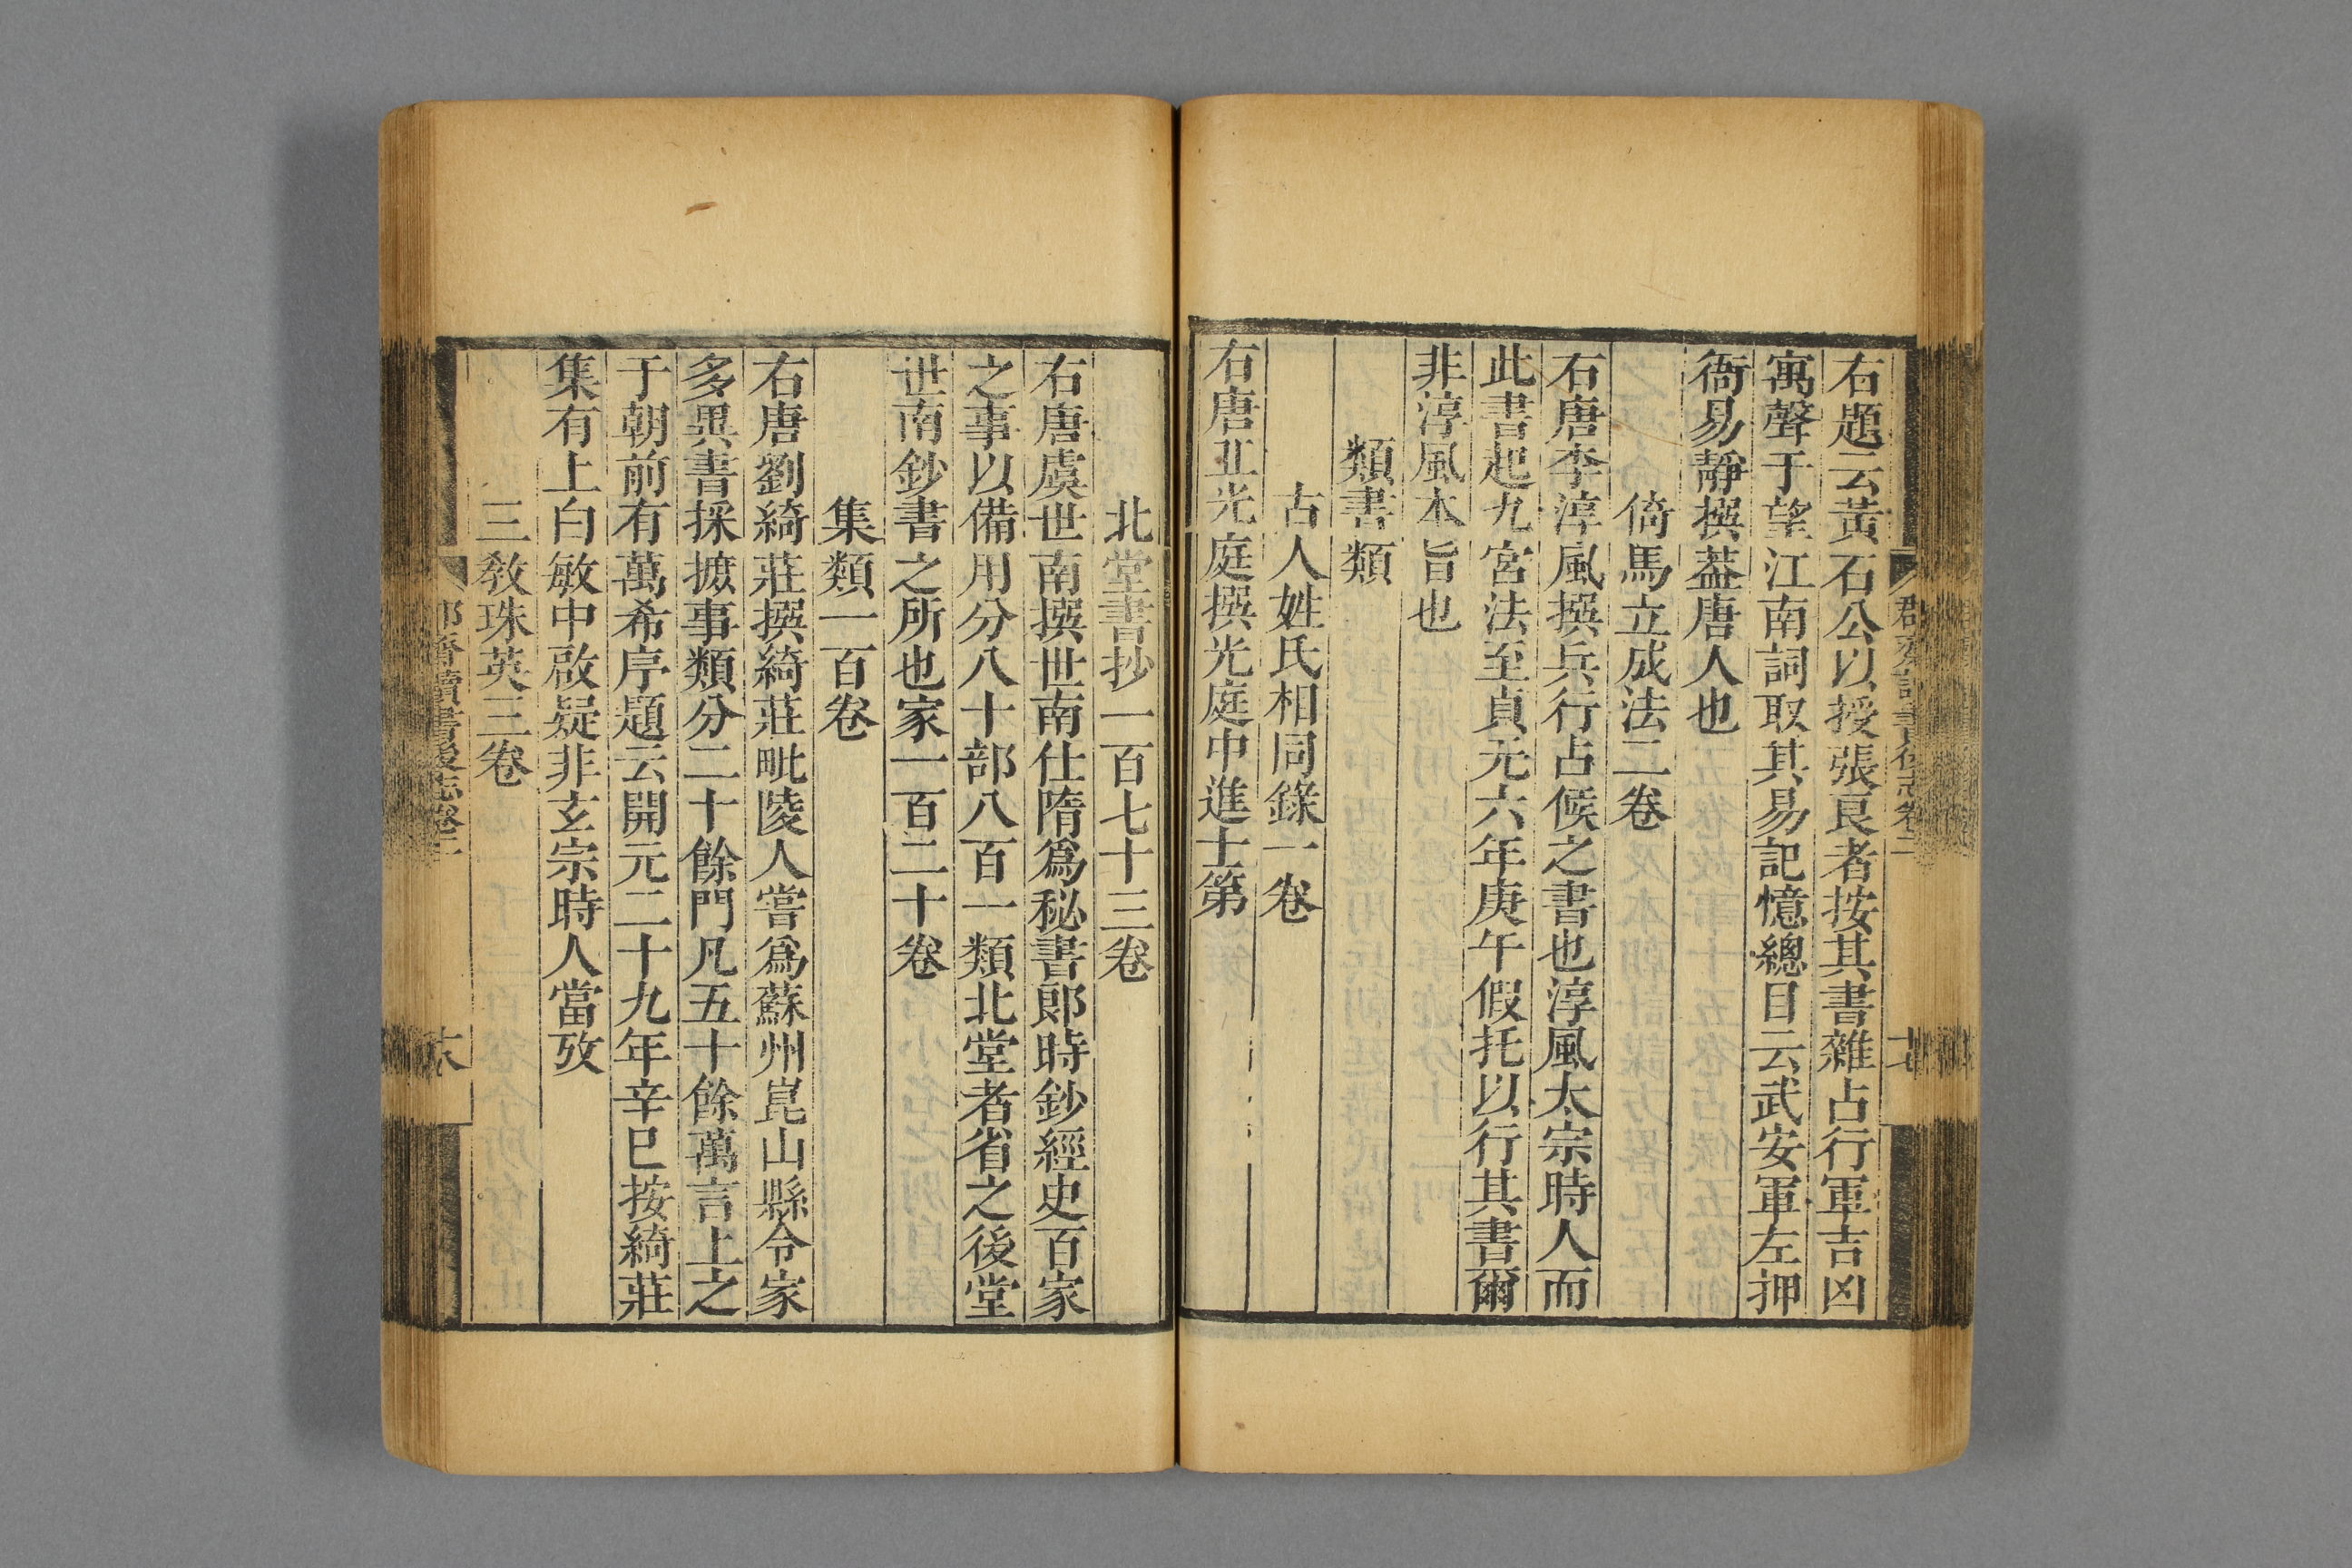 右題云黃石公以授張良者按其書雜占行軍吉凶
寓聲于望江南詞取其易記憶總目云武安軍左押
衙易靜撰葢唐人也
倚馬立成法二卷
右唐李淳風撰兵行占候之書也淳風太宗時人而
此書起九宮法至貞元六年庚午假托以行其書爾
非淳風本旨也
類書類
古人姓氏相同錄一卷
右唐丘光庭撰光庭中進士第
北堂書抄一百七十三卷
右唐虞世南撰世南仕隋爲秘書郞時鈔經史百家
之事以備用分八十部八百一類北堂者省之後堂
世南鈔書之所也家一百二十卷
集類一百卷
右唐劉綺莊撰綺莊毗陵人嘗爲蘇州崑山縣令家
多異書採摭事類分二十餘門凡五十餘萬言上之
于朝前有萬希序題云開元二十九年辛巳按綺莊
集有上白敏中啟疑非玄宗時人當攷
三教珠英三卷
讀書後志卷二
十八